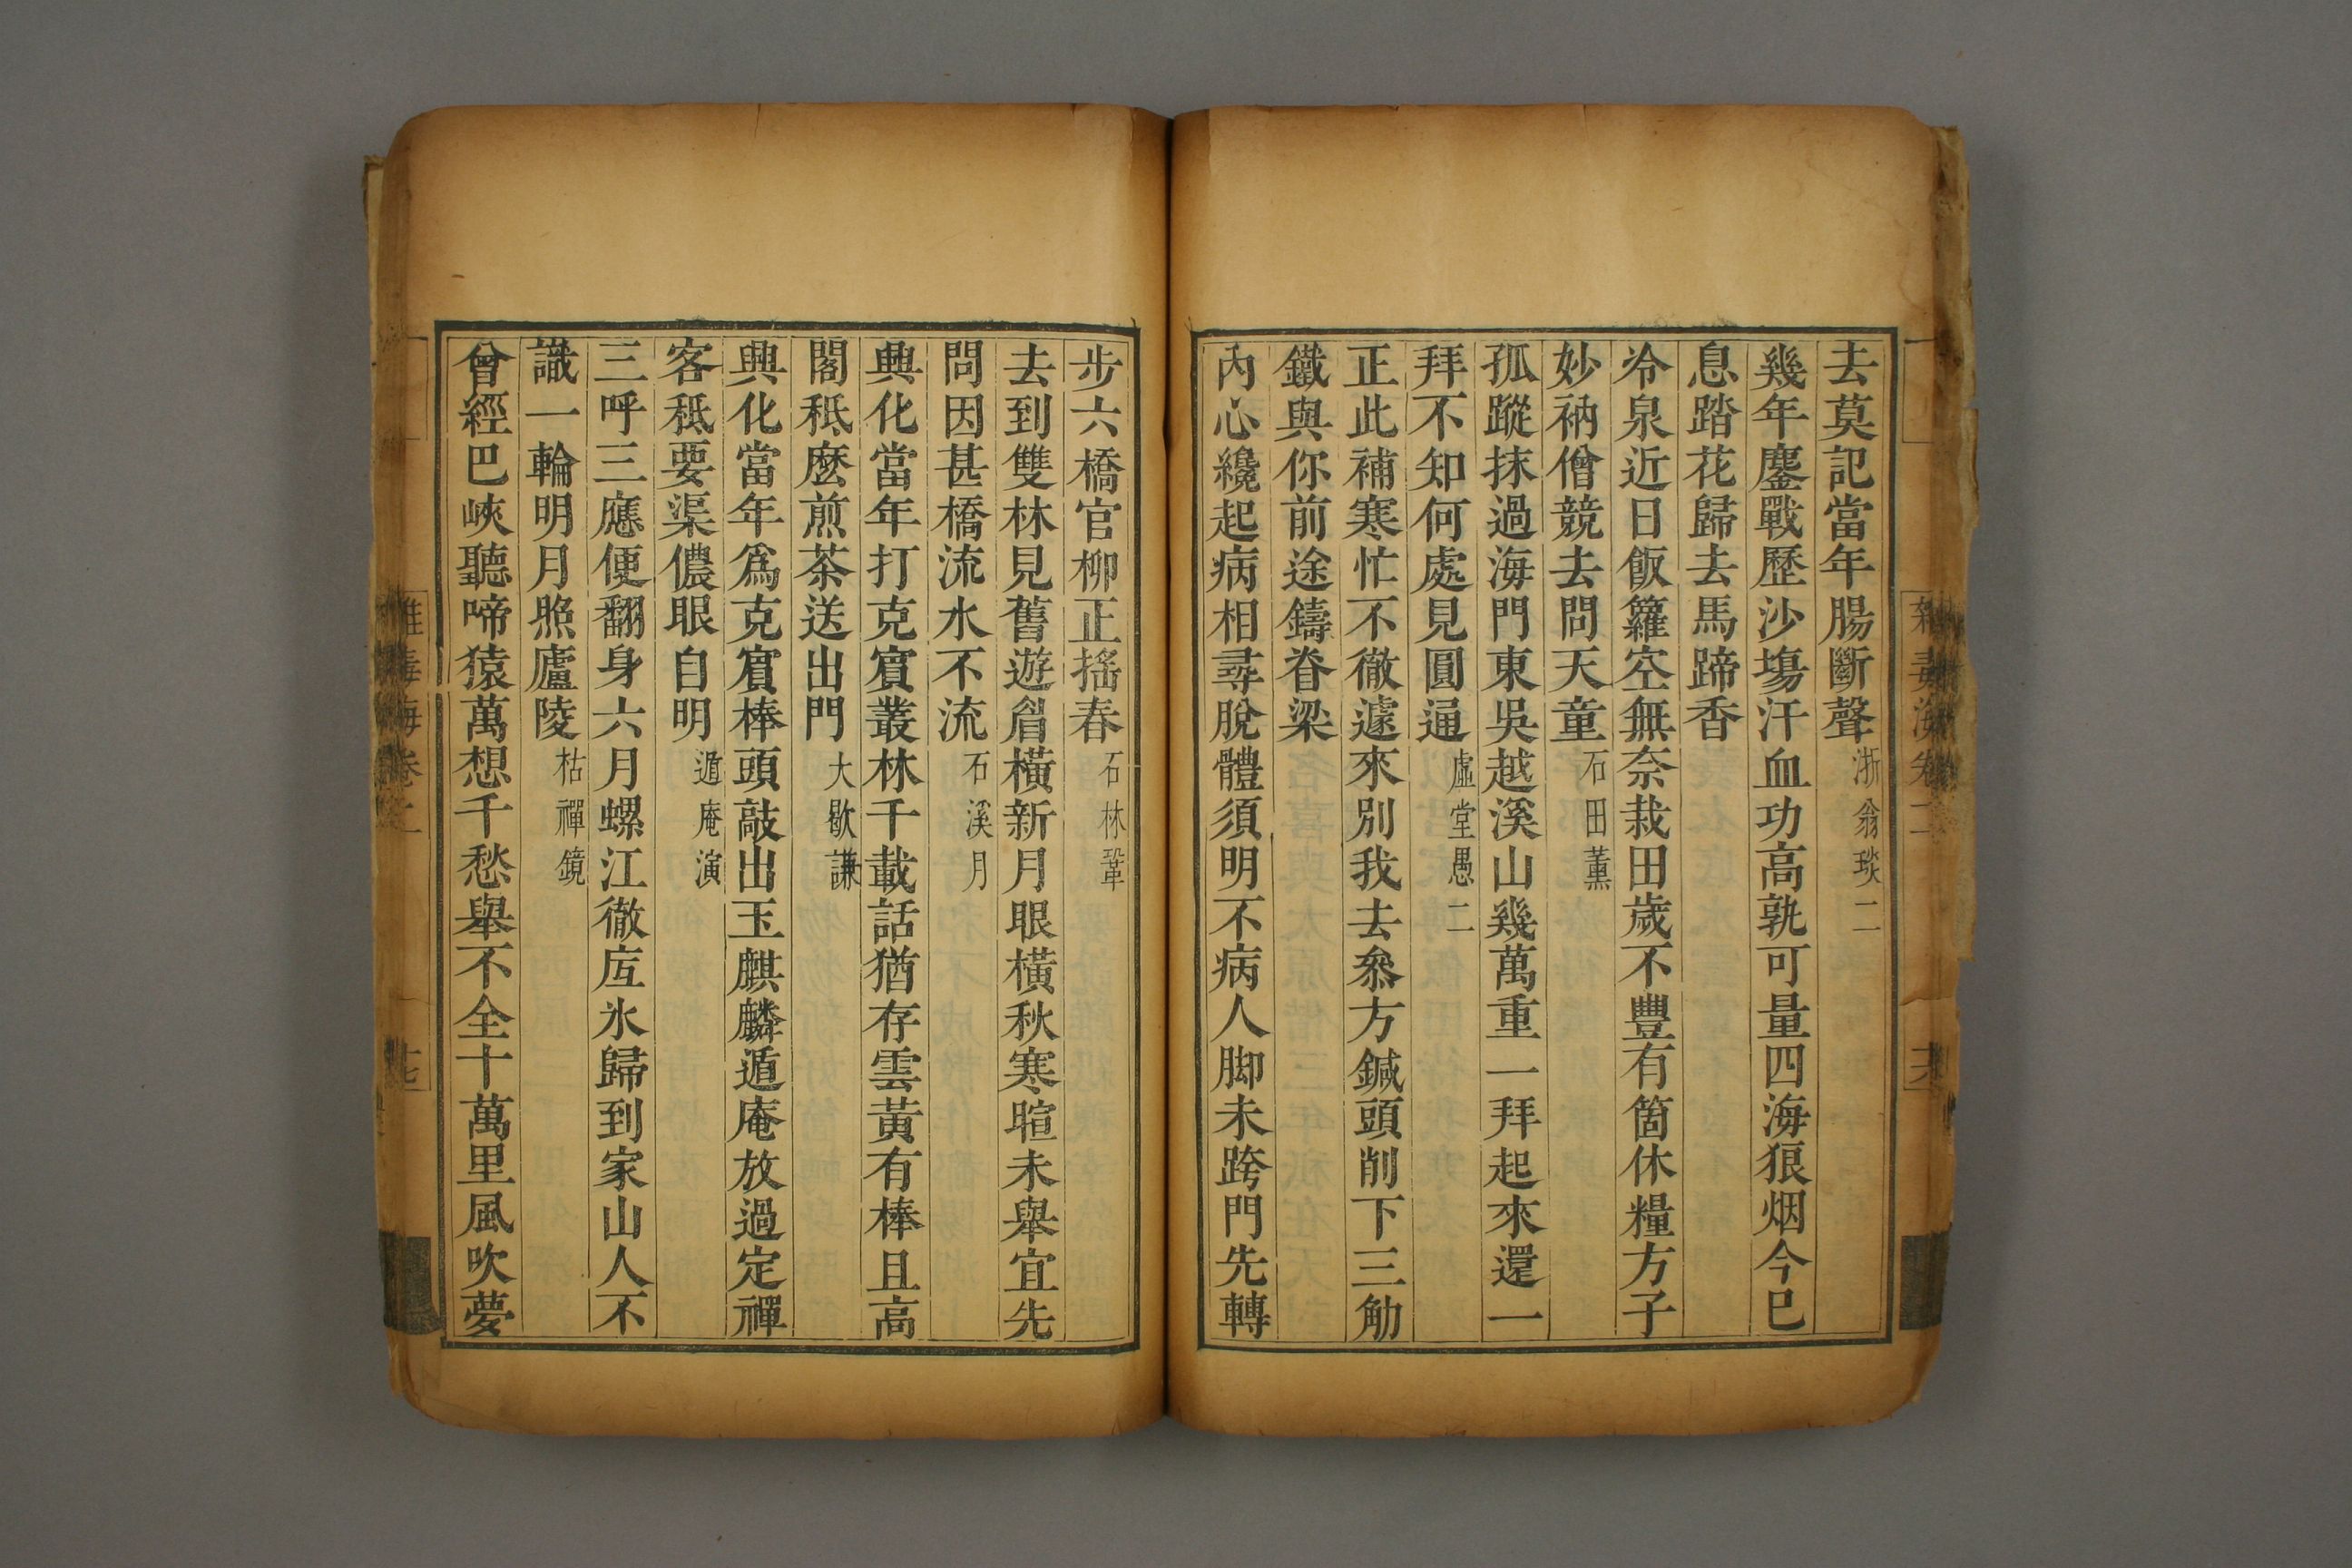 去莫記當年腸斷聲浙翁琰二
幾年鏖戰歷沙塲汗血功高孰可量四海狼烟今已
息踏花歸去馬蹄香
冷泉近日飯籮空無奈栽田歲不豐有箇休糧方子
妙衲僧競去問天童石田薰
孤蹤抹過海門東吳越溪山幾萬重一拜起來還一
拜不知何處見圓通虛堂愚二
正此補寒忙不徹遽來別我去叅方鍼頭削下三觔
鐵與你前途鑄脊梁
內心纔起病相尋脫體須明不病人脚未跨門先轉
步六橋官柳正搖春石林鞏
去到雙林見舊遊眉橫新月眼橫秋寒暄未舉宜先
問因甚橋流水不流石溪月
興化當年打克賓叢林千載話猶存雲黃有棒且高
閣秪麽煎茶送出門大歇謙
興化當年爲克賓棒頭敲出玉麒麟遁庵放過定禪
客秪要渠儂眼自明遁庵演
三呼三應便翻身六月螺江徹底氷歸到家山人不
識一輪明月照廬陵枯禪鏡
曾經巴峽聽啼猿萬想千愁舉不全十萬里風吹夢